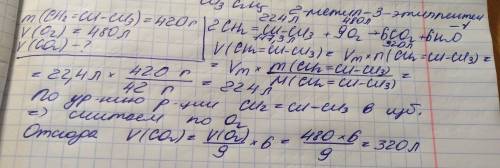 2-метил-3-этилпентен
m(CH₂=CH-CH₃)=420г
V(O₂) = 480л
V(CO₂) - ?
224л 480л
2CH₂=CH-CH₃ + 9O₂ → 6CO₂ + 6H₂O
320л
V(CH₂=CH-CH₃) = Vm × n(CH₂=CH-CH₃) =
= Vm × m(CH₂=CH-CH₃) / M(CH₂=CH-CH₃) =
= 22,4л × 420 г / 42 г = 224л
По ур-нию р-ции CH₂=CH-CH₃ в изб.
⇒ считаем по O₂
Отсюда V(CO₂) = V(O₂)/9 × 6 = 480×6/9 = 320л